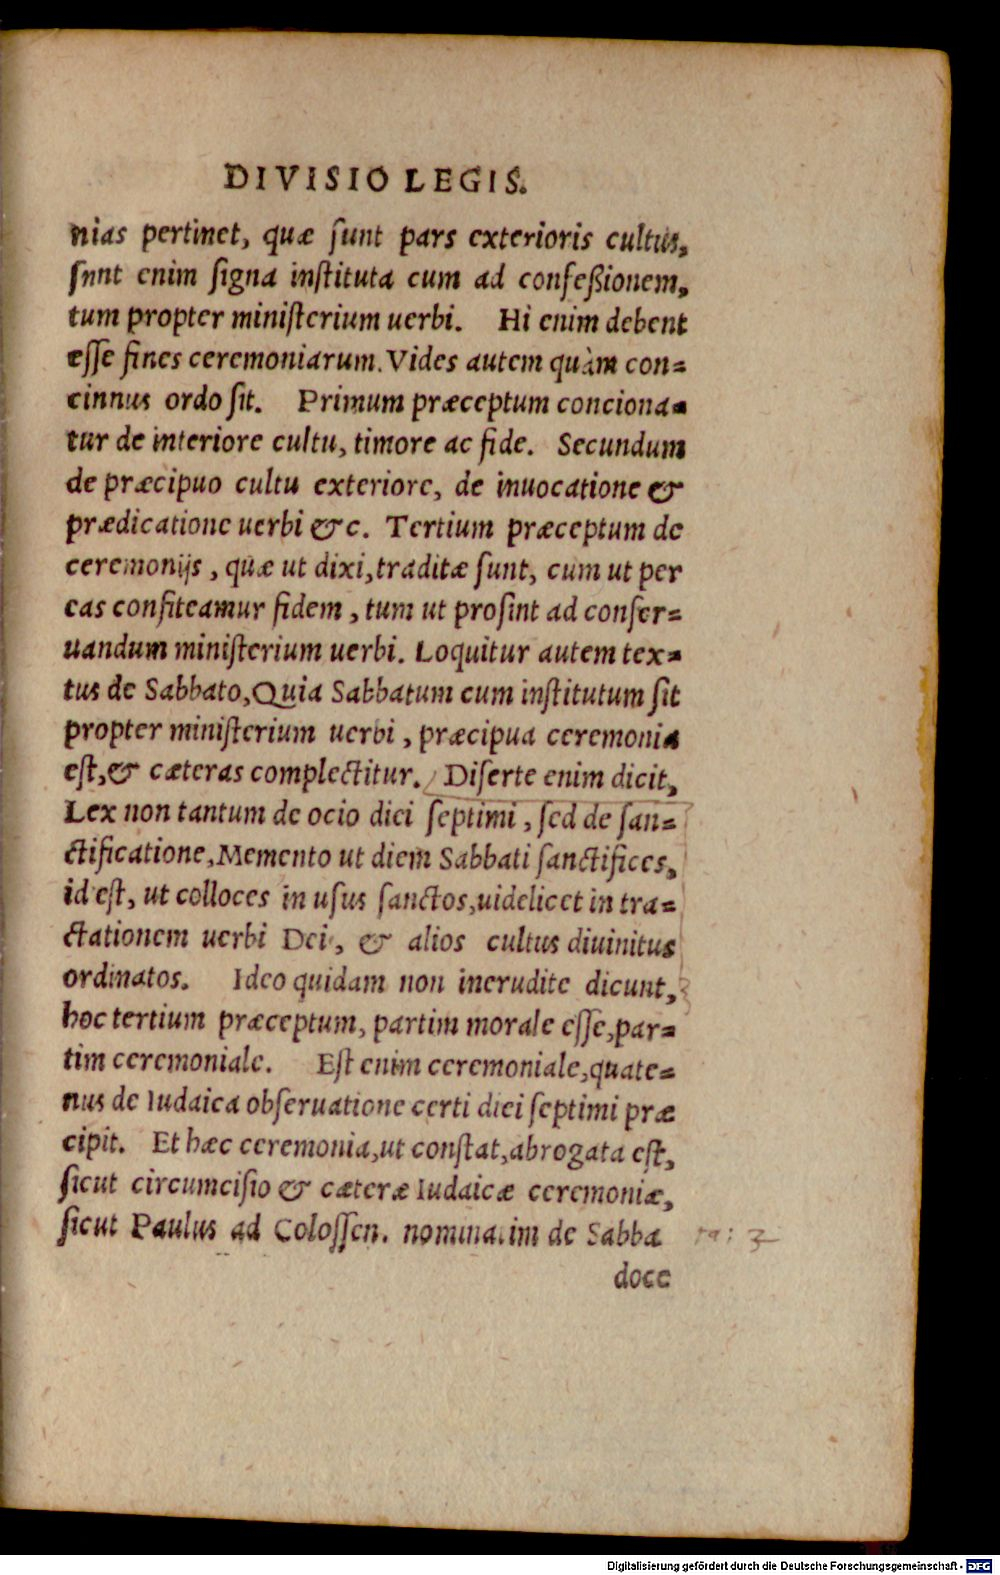 DIVISIO LEGIS.
nias pertinet, quæ ſunt pars exterioris cultus,
ſnnt enim ſigna inſtituta cum ad confeßionem,
tum propter miniſterium uerbi. Hi enim debent
eſſe fines ceremoniarum. Vides autem quàm con=
cinnus ordo ſit. Primum præceptum conciona=
tur de interiore cultu, timore ac fide. Secundum
de præcipuo cultu exteriore, de inuocatione &
prædicatione uerbi &c. Tertium præceptum de
ceremonijs, quæ ut dixi, traditæ ſunt, cum ut per
eas confiteamur fidem, tum ut proſint ad conſer=
uandum miniſterium uerbi. Loquitur autem tex=
tus de Sabbato, Quia Sabbatum cum inſtitutum ſit
propter miniſterium uerbi, præcipua ceremonia
eſt, & cæteras complectitur. Diſerte enim dicit,
Lex non tantum de ocio diei ſeptimi, ſed de ſan=
ctificatione, Memento ut diem Sabbati ſanctifices,
id eſt, ut colloces in uſus ſanctos, uidelicet in tra=
ctationem uerbi Dei, & alios cultus diuinitus
ordinatos. Ideo quidam non inerudite dicunt,
hoc tertium præceptum, partim morale eſſe, par=
tim ceremoniale. Eſt enim ceremoniale, quate=
nus de Iudaica obſeruatione certi diei ſeptimi præ
cipit. Et hæc ceremonia, ut conſtat, abrogata eſt,
ſicut circumciſio & cæteræ Iudaicæ ceremoniæ,
ſicut Paulus ad Coloſſen. nominatim de Sabba
doce
Digitalisierung gefördert durch die Deutsche Forschungsgemeinschaft - DFG